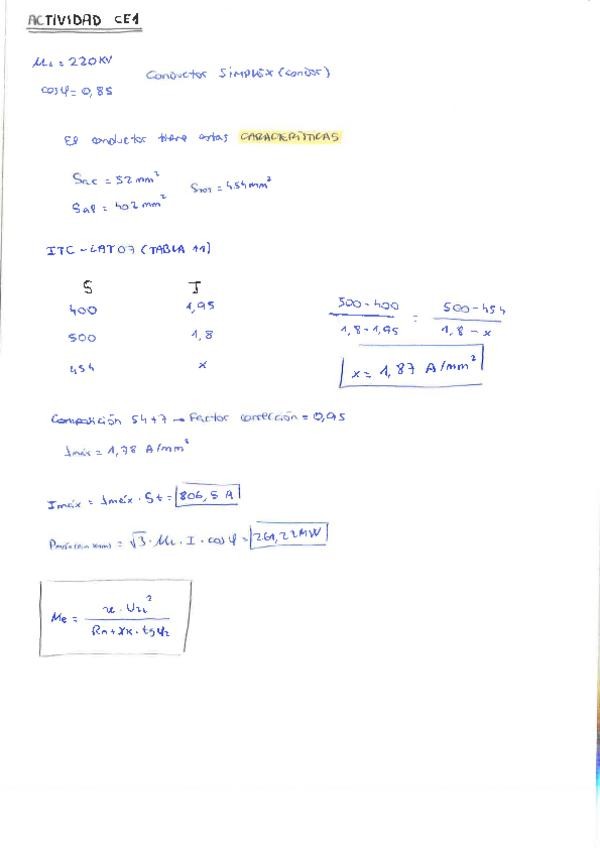 ACTIVIDAD CE1
UL = 220KV
cosφ = 0,85
Conductor SIMPLEX (condor)
El conductor tiene estas CARACTERÍSTICAS
Sac = 52 mm²
Sal = 402 mm²
Stot = 454 mm²
ITC-LAT 07 (TABLA 11)
S J
400 1,95
500 1,8
454 x
500-400 / 1,8-1,95 = 500-454 / 1,8-x
x = 1,87 A/mm²
Composición 54+7 → Factor corrección = 0,95
Jmáx = 1,78 A/mm²
Imáx = Jmáx · St = 806,5 A
= √3 · UL · I · cosφ = 261,22MW
Me = x · U2L² / Rn + Xk · tgφ2